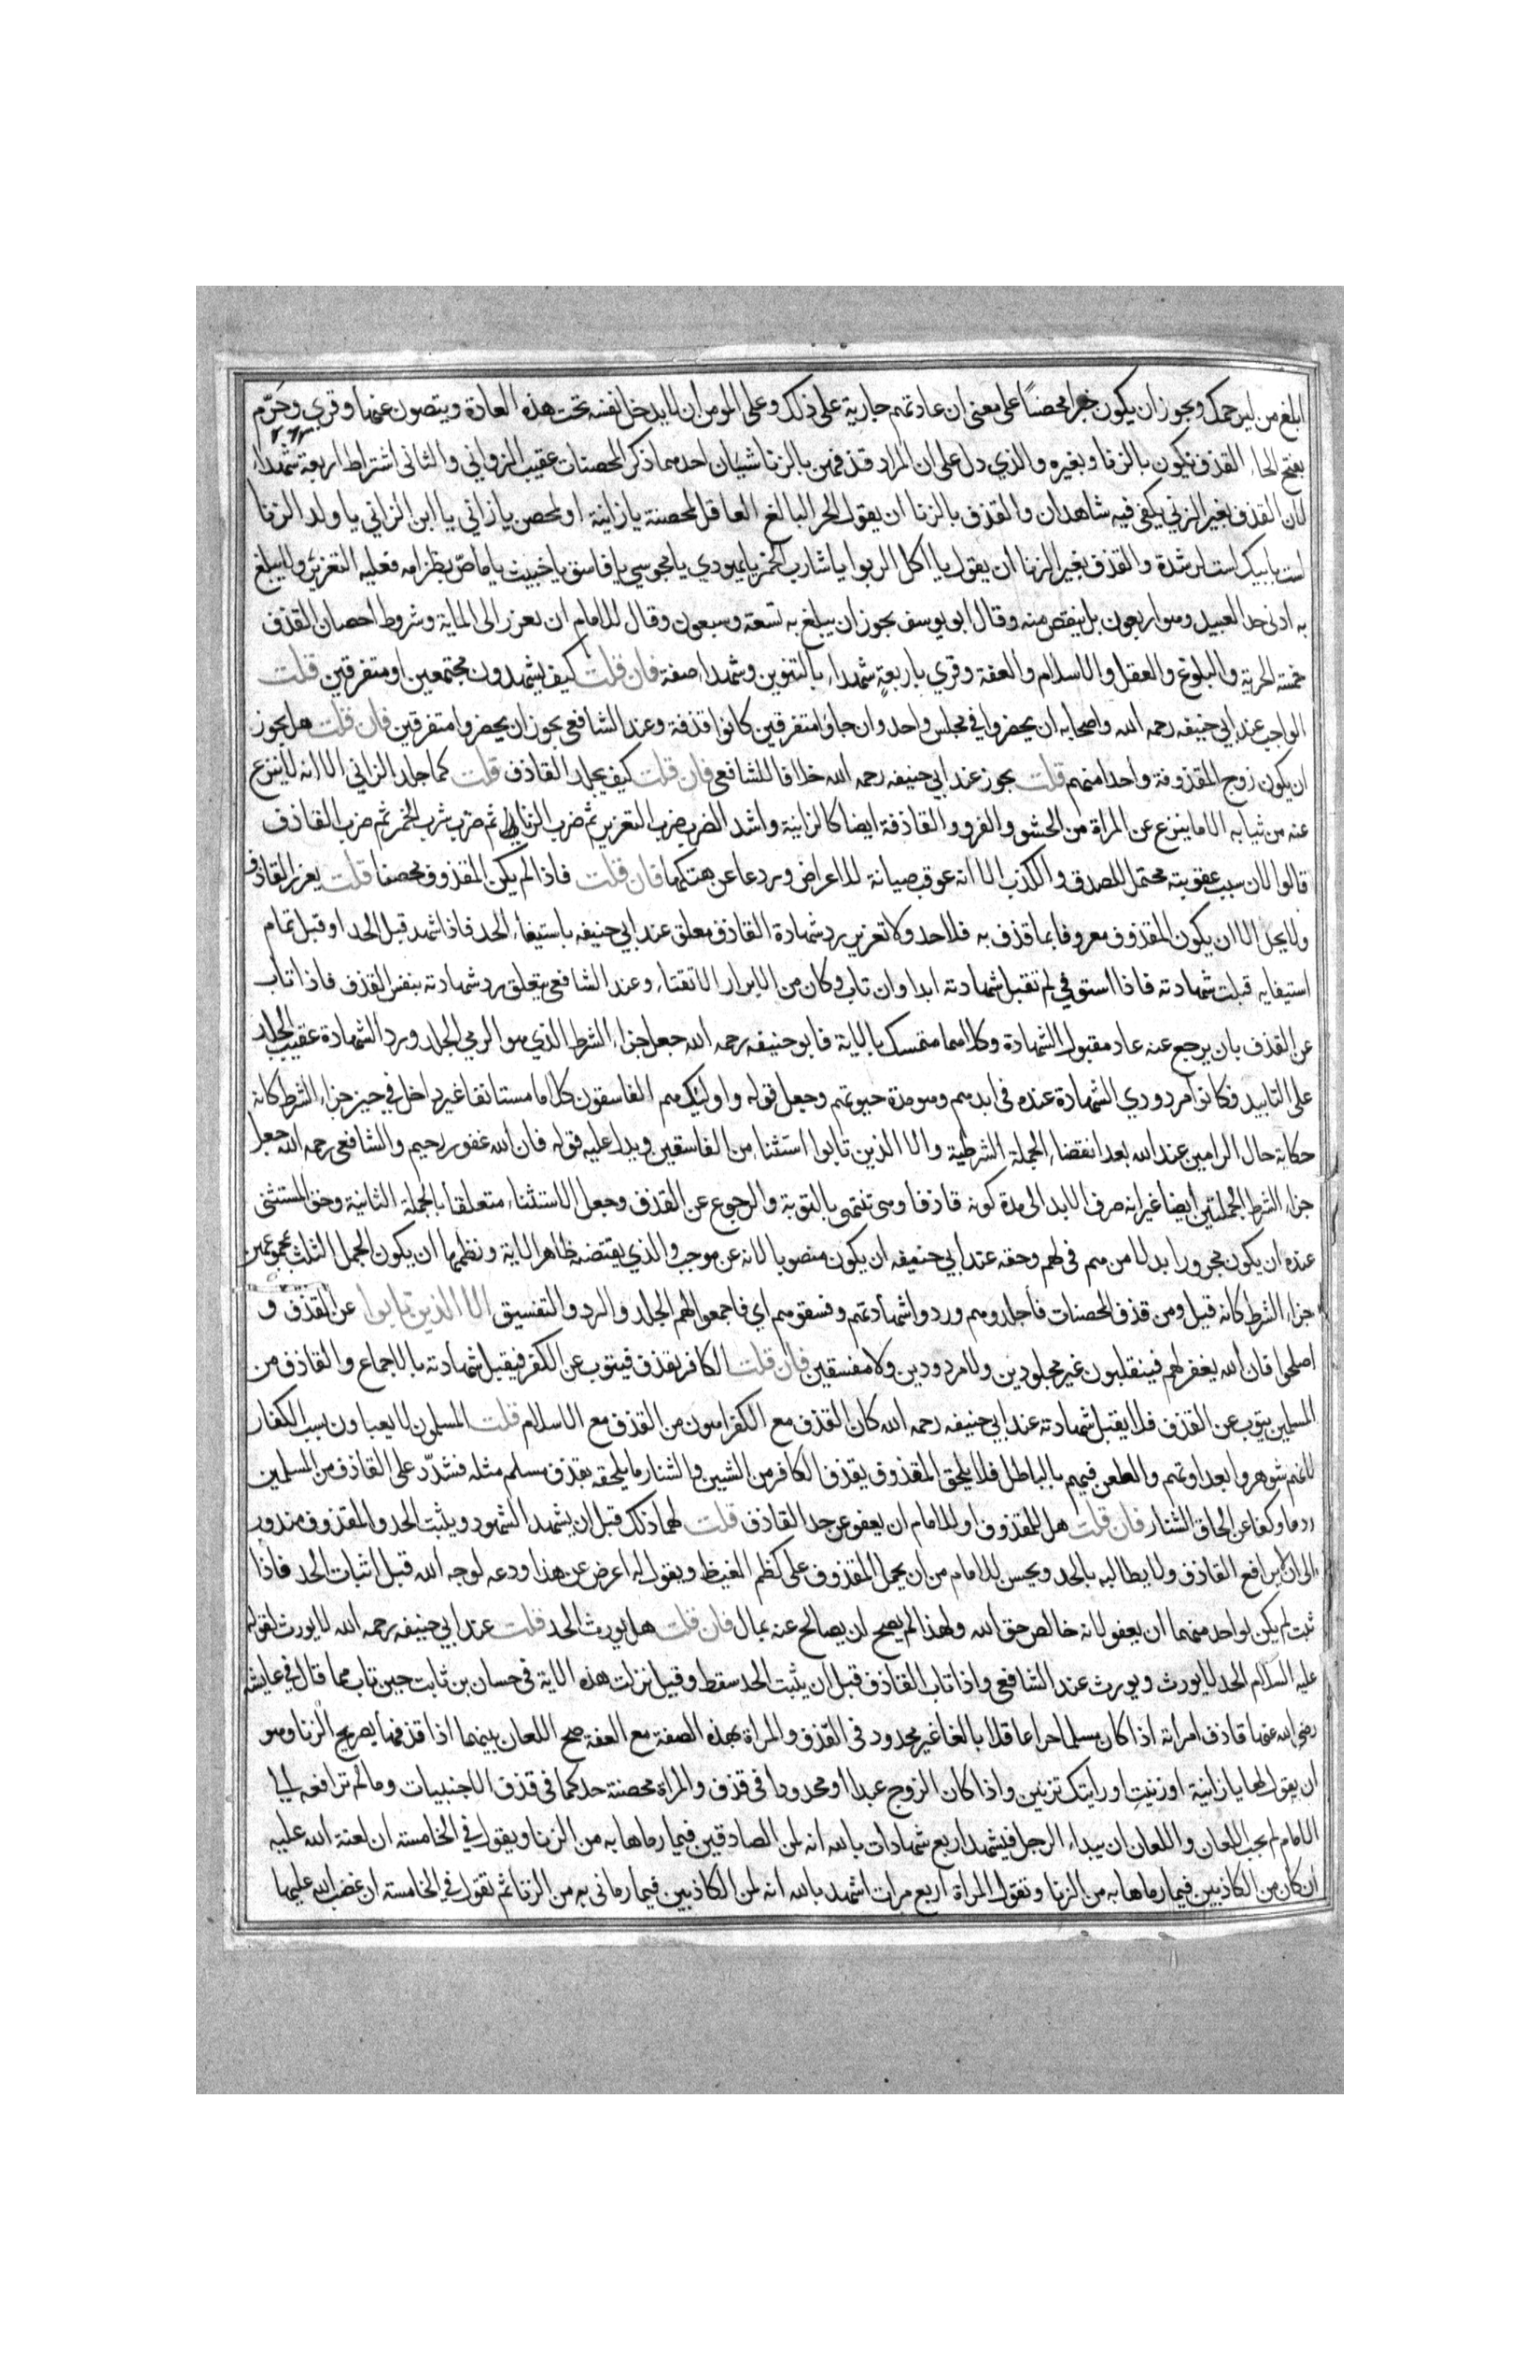 ابلغ من ليرحمك ويجوز ان يكون خبرا محضا على معنى ان عادتهم جارية على ذلك وعلى المومن ان لا يدخل نفسه تحت هذه العادة ويتصون عنها وقري وحَرَّم
بفتح الحاء القذف يكون بالزنا وبغيره والذي دل على ان المراد قذفهن بالزنا شيئان احدهما ذكر المحصنات عقيب الزواني والثاني اشتراط اربعة شهداء
لان القذف بغير الزني يكفي فيه شاهدان والقذف بالزنا ان يقول الحر البالغ العاقل لمحصنة يا زانية او لمحصن يا زاني يا ابن الزاني يا ولد الزنا
لست لابيك لست لرشدة والقذف بغير الزنا ان يقول يا اكل الربوا يا شارب الخمر يا يهودي يا مجوسي يا فاسق يا خبيث يا ماصّ بظر امه فعليه التعزير ولا يبلغ
به ادنى حد العبيد وهو اربعون بل ينقص منه وقال ابو يوسف يجوز ان يبلغ به تسعة وسبعون وقال للامام ان يعزر الى الماية وشروط احصان القذف
خمسة الحرية والبلوغ والعقل والاسلام والعفة وقري باربعةٍ شهداء بالتنوين وشهداء صفة فان قلت كيف يشهدون مجتمعين او متفرقين قلت
الواجب عند ابي حنيفه رحمه الله واصحابه ان يحضروا في مجلس واحد وان جاؤا متفرقين كانوا قذفة وعند الشافعي يجوز ان يحضروا متفرقين فان قلت هل يجوز
ان يكون زوج المقذوفة واحدا منهم قلت يجوز عند ابي حنيفه رحمه الله خلافا للشافعي فان قلت كيف يجلد القاذف قلت كما جلد الزاني الا انه لا ينزع
عنه من ثيابه الا ما ينزع عن المراة من الحشو والفرو والقاذفة ايضا كالزانية واشد الضرب ضرب التعزير ثم ضرب الزنا ثم ضرب شرب الخمر ثم ضرب القاذف
قالوا لان سبب عقوبته محتمل للصدق والكذب الا انه عوقب صيانة للاعراض وردعا عن هتكها فان قلت فاذا لم يكن المقذوف محصنا قلت يعزر القاذف
ولا يحد الا ان يكون المقذوف معروفا بما قذف به فلا حد ولا تعزير رد شهادة القاذف معلق عند ابي حنيفه باستيفاء الحد فاذا شهد قبل الحد او قبل تمام
استيفايه قبلت شهادته فاذا استوفي لم تقبل شهادته ابدا وان تاب وكان من الابرار الاتقياء وعند الشافعي يتعلق رد شهادته بنفس القذف فاذا تاب
عن القذف بان يرجع عنه عاد مقبول الشهادة وكلاهما متمسك بالاية فابو حنيفه رحمه الله جعل جزاء الشرط الذي هو الرمي الجلد ورد الشهادة عقيب الجلد
على التابيد فكانوا مردودي الشهادة عنده في ابدهم وهو مدة حيوتهم وجعل قوله واوليك هم الفاسقون كلاما مستانفا غير داخل في حيز جزاء الشرط كانه
حكاية حال الرامين عند الله بعد انقضاء الجملة الشرطية والا الذين تابوا استثناء من الفاسقين ويدل عليه قوله فان الله غفور رحيم والشافعي رحمه الله جعل
جزاء الشرط الجملتين ايضا غير انه صرف الابد الى مدة كونه قاذفا وهي تنتهي بالتوبة والرجوع عن القذف وجعل الاستثناء متعلقا بالجملة الثانية وحق المستثنى
عنده ان يكون مجرورا بدلا من هم في لهم وحقه عند ابي حنيفه ان يكون منصوبا لانه عن موجب والذي يقتضيه ظاهر الاية ونظمها ان يكون الجمل الثلث بمجموعهن
جزاء الشرط كانه قيل ومن قذف المحصنات فاجلدوهم وردوا شهادتهم وفسقوهم اي فاجمعوا لهم الجلد والرد والتفسيق الا الذين تابوا عن القذف و
اصلحوا فان الله يغفر لهم فينقلبون غير مجلودين ولا مردودين ولا مفسقين فان قلت الكافر يقذف فيتوب عن الكفر فيقبل شهادته بالاجماع والقاذف من
المسلمين يتوب عن القذف فلا يقبل شهادته عند ابي حنيفه رحمه الله كان القذف مع الكفر اهون من القذف مع الاسلام قلت المسلمون لا يعباون بسب الكفار
لانهم شهروا بعداوتهم والطعن فيهم بالباطل فلا يلحق المقذوف بقذف الكافر من الشين والشنار ما يلحقه بقذف مسلم مثله فشدّد على القاذف من المسلمين
ردعا وكفا عن الحاق الشنار فان قلت هل للمقذوف او للامام ان يعفو عن حد القاذف قلت لهما ذلك قبل ان يشهد الشهود ويثبت الحد والمقذوف مندوب
الى ان لا يرافع القاذف ولا يطالبه بالحد ويحسن للامام من ان يحمل المقذوف على كظم الغيظ ويقول له اعرض عن هذا ودعه لوجه الله قبل اثبات الحد فاذا
ثبت لم يكن لواحد منهما ان يعفو لانه خالص حق الله ولهذا لم يصح ان يصالح عنه بمال فان قلت هل يورث الحد قلت عند ابي حنيفه رحمه الله لا يورث لقوله
عليه السلام الحد لا يورث ويورث عند الشافعي واذا تاب القاذف قبل ان يثبت الحد سقط وقيل نزلت هذه الاية في حسان بن ثابت حين تاب مما قال في عايشه
رضي الله عنها قاذف امراته اذا كان مسلما حرا عاقلا بالغا غير محدود في القذف والمراة بهذه الصفة مع العفة صح اللعان بينهما اذا قذفها بصريح الزنا وهو
ان يقول لها يا زانية او زنيتِ او رايتك تزنين واذا كان الزوج عبدا او محدودا في قذف والمراة محصنة حد كما في قذف الاجنبيات وما لم ترافعه الى
الامام لم يجب اللعان واللعان ان يبداء الرجل فيشهد اربع شهادات بالله انه لمن الصادقين فيما رماها به من الزنا ويقول في الخامسة ان لعنة الله عليه
ان كان من الكاذبين فيما رماها به من الزنا وتقول المراة اربع مرات اشهد بالله انه لمن الكاذبين فيما رماني به من الزنا ثم تقول في الخامسة ان غضب الله عليها